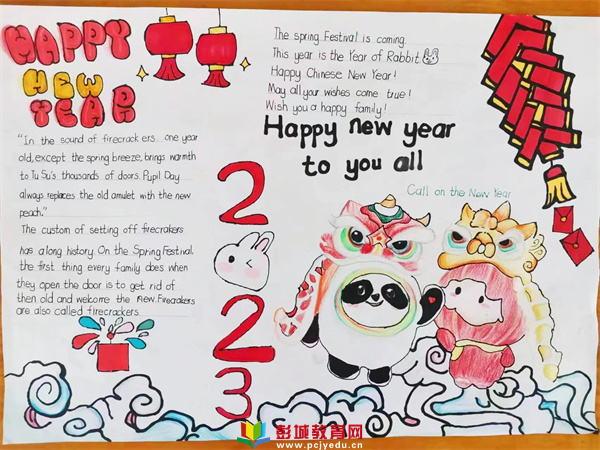 HAPPY
NEW
YEAR
"In the sound of firecrackers one year
old, except the spring breeze, brings warmth
to Tu Su's thousands of doors. Pupil Day
always replaces the old amulet with the new
peach."
The custom of setting off firecrakers
has a long history. On the Spring Festival
the first thing every family does when
they open the door is to get rid of
then old and welcome the new. Firecrakers
are also called firecrackers.
2
2
3
The spring Festival is coming
This year is the Year of Rabbit
Happy Chinese New Year!
May all your wishes come true!
Wish you a happy family!
Happy new year
to you all
Call on the New Year
彭城教育网
www.pcjyedu.cn